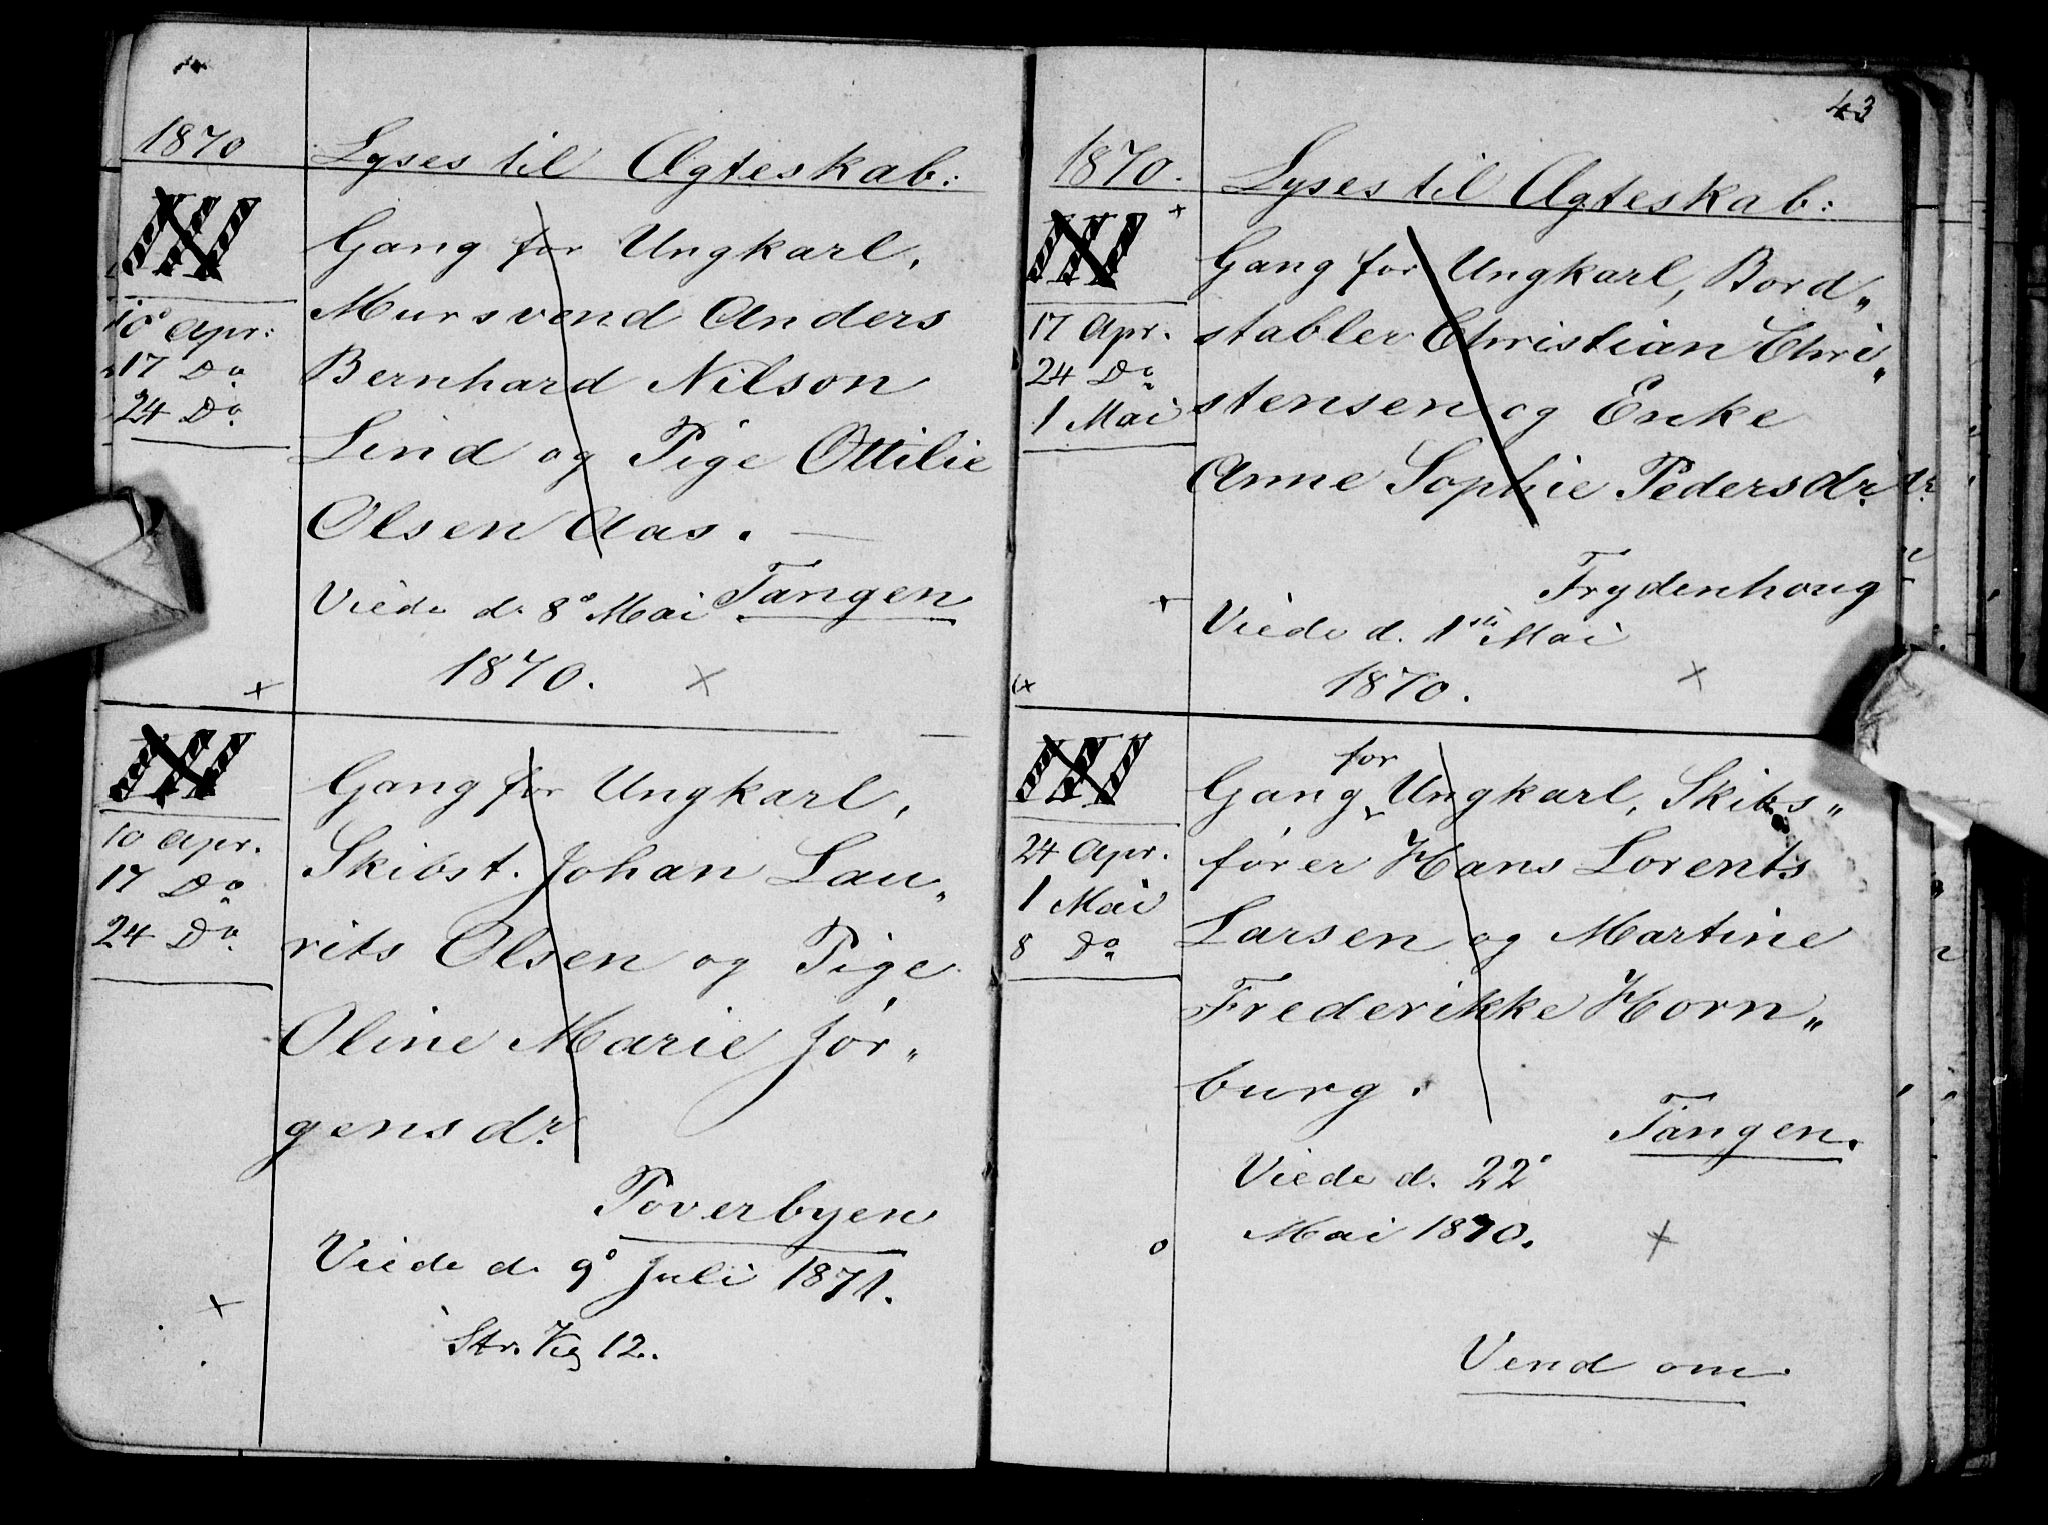 1870
Lyses til Ægteskab:
III
10° Apr:
17 Do
24 Do
Gang for Ungkarl,
Mursvend Anders
Bernhard Nilson
Lind og Pige Ottilie
Olsen Aas. —
Tangen
Viede d. 8° Mai
1870. ×
×
III
10 Apr.
17 Do
24 Do
Gang for Ungkarl,
Skibst. Johan Lau„
rits Olsen og Pige
Oline Marie Jör„
gensdr.
Toverbyen
Viede d. 9° Juli 1871.
Str. Veg 12.
×
43
1870.
Lyses til Ægteskab:
III ×
17 Apr.
24 Do
1 Mai
Gang for Ungkarl, Bord„
stabler Christian Chri„
stensen og Enke
Anne Sophie Pedersdr.
Frydenhoug
Viede d. 1ste Mai
1870. ×
×
III
24 Apr.
1 Mai
8 Do
Gang for Ungkarl, Skibs„
fører Hans Lorents
Larsen og Martine
Frederikke Horn„
burg.
Tangen.
Viede d. 22°
Mai 1870. ×
o
Vend om